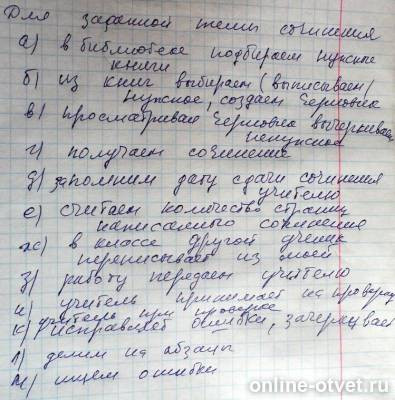 Для заданной темы сочинения
а) в библиотеке подбираем нужные
книги
б) из книг выбираем (выписываем)
нужное, создаем черновик
в) просматривая черновик вычеркиваем
ненужное
г) получаем сочинение
д) запомним дату сдачи сочинения
учителю
е) считаем количество страниц
написанного сочинения
ж) в классе другой ученик
переписывает из моей
з) работу передаем учителю
и) учитель принимает на проверку
к) учитель при проверке
исправляет ошибки, зачеркивает
л) делим на абзацы
м) ищем ошибки
online-otvet.ru